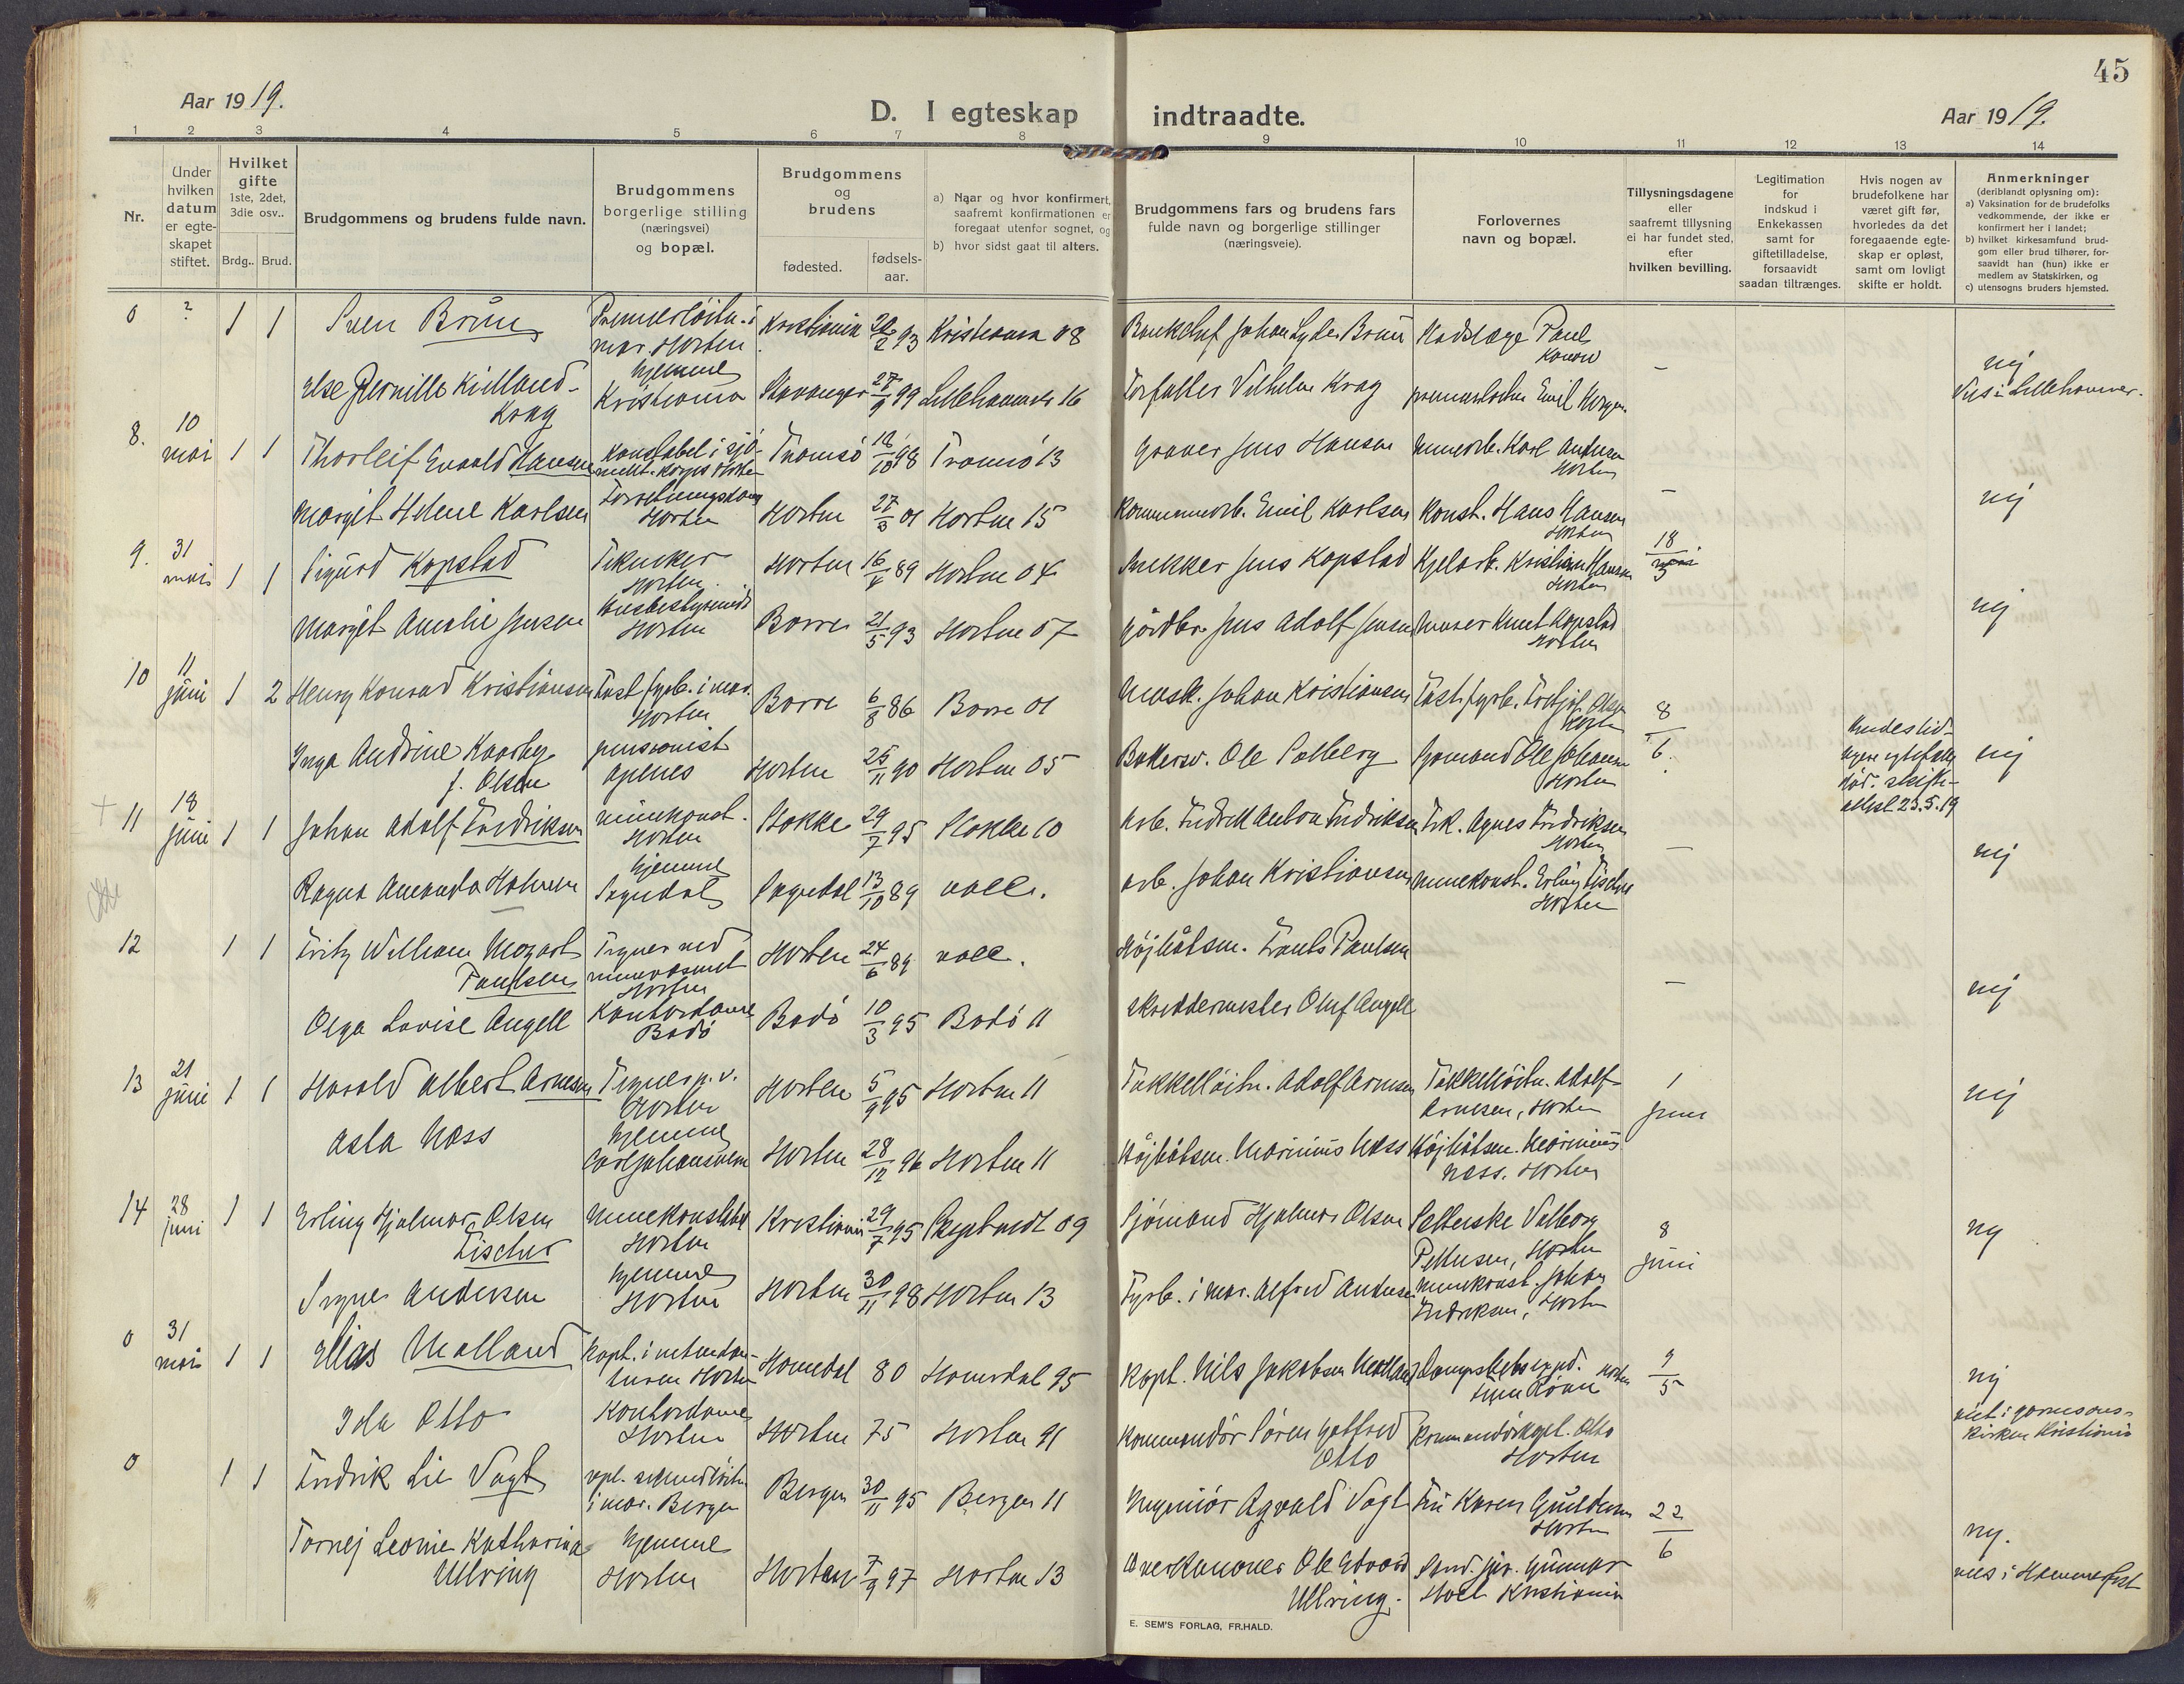 45
Aar 1919.
D. I egteskap indtraadte.
Aar 1919.
1 2 3 4 5 6 7 8 9 10 11 12 13 14
Nr.
Under hvilken datum er egte-skapet stiftet.
Hvilket gifte 1ste, 2det, 3die osv..
Brdg.. Brud.
Brudgommens og brudens fulde navn.
Brudgommens borgerlige stilling (næringsvei) og bopæl.
Brudgommens og brudens
fødested. fødsels-aar.
a) Naar og hvor konfirmert, saafremt konfirmationen er foregaat utenfor sognet, og
b) hvor sidst gaat til alters.
Brudgommens fars og brudens fars fulde navn og borgerlige stillinger (næringsveie).
Forlovernes navn og bopæl.
Tillysningsdagene eller saafremt tillysning ei har fundet sted, efter hvilken bevilling.
Legitimation for indskud i Enkekassen samt for giftetilladelse, forsaavidt saadan tiltrænges.
Hvis nogen av brudefolkene har været gift før, hvorledes da det foregaaende egte-skap er opløst, samt om lovligt skifte er holdt.
Anmerkninger
(deriblandt oplysning om):
a) Vaksination for de brudefolks vedkommende, der ikke er konfirmert her i landet;
b) hvilket kirkesamfund brud-gom eller brud tilhører, for-saavidt han (hun) ikke er medlem av Statskirken, og
c) utensogns bruders hjemsted.
0 ? 1 1 Sven Brun Premierløitn. i mar. Horten Kristiania 93 Kristiania 08 Bankchef Johan Lyder Brun Paul Konow
Else Pernille Kielland-Krag hjemme Kristiania Stavanger 27/9 99 Lillehammer 16 Forfatter Vilhelm Krag premierløitn. Emil — nej Viet i Lillehammer.
8. 10 mai 1 1 Thorleif Evald Hansen Konstabel i sjø-mil. korps Horten Tromsø 18/10 98 Tromsø 13 Graver Jens Hansen Minearb. Karl Andersen Horten
Margit Helene Karlsen Forretningsdame Horten Horten 27/3 01 Horten 15 Kommunearb. Emil Karlsen Konst. Hans Hansen Horten — nej
9. 31 mai 1 1 Sigurd Kopstad Snekker Horten Horten 16/4 89 Horten 04 Snekker Jens Kopstad Kjelarb. Kristian Hansen Horten 18/5
Margit Amalie Jensen Husbestyrerinde Horten Borre 21/5 93 Horten 07 Gårdbr. Jens Adolf Jensen Murer Knut Kopstad Horten nej
10 11 juni 1 2 Henry Konrad Kristiansen Fast fyrb. i mar. Horten Borre 6/8 86 Borre 01 Mask. Johan Kristiansen Fast fyrb. Olsen Horten 8/6
Inga Andrine Kaarby f. Olsen pensionist Apenes Horten 25/11 90 Horten 05 Bakersv. Ole Solberg Sjømand Ole Johansen Horten
Brudes tid-ligere egtefælle død. skifte-attest 23.5.19 nej
11 18 juni 1 1 Johan Adolf Fredriksen minekonst. Horten Stokke 29/7 95 Stokke 10 Arb. Fredrik Anton Fredriksen Frk. Agnes Fredriksen Horten
Ragna Amanda Halvorsen hjemme Sogndal Sogndal 13/10 89 Arb. Johan Kristiansen Minekonst. Erling Fischer Horten — nej
12 1 1 Fritz William Mozart Paulsen Tegner ved minevæsenet Horten Horten 24/6 89 Høibåtsm. Frants Paulsen
Olga Lovise Angell Kontordame Bodø Bodø 10/3 95 Bodø 11 skreddermester Oluf Angell — nej
13 21 juni 1 1 Harald Albert Arnesen Tegner p. v. Horten Horten 5/9 95 Horten 11 Takkelløitn. Adolf Arnesen Takkelløitn. Adolf Arnesen, Horten 1 juni
Asta Næss hjemme Carljohansvern Horten 28/12 96 Horten 11 Høibåtsm. Marinius Næss Høibåtsm. Marinius Næss. Horten nej
14 28 juni 1 1 Erling Hjalmar Olsen Fischer Minekonstabel Horten Kristiania 29/7 95 09 Sjømand Hjalmar Olsen Valborg Pettersen, Horten 8 juni
Signe Andersen hjemme Horten Horten 30/11 98 Horten 13 Fyrb. i mar. Alfred Andersen Minekonst. Johan Fredriksen, Horten nej
0 31 mai 1 1 Elias Molland Kapt. i intendan-turen Horten Homedal 80 Homedal 95 Kapt. Nils Jakobsen Molland 9/5
Ida Otto Kontordame Horten Horten 75 Horten 91 Kommandør Søren Gotfred Otto Kommandørkapt. Otto Horten nej viet i garnisons-kirken Kristiania
0 1 1 Fredrik Lie Vogt vpl. sekundløitn. i mar. Bergen Bergen 30/11 95 Bergen 11 Ingeniør Agvald Vogt Fru Karen Guldersen Horten 22/6
Tornej Leonie Katharina Ullring hjemme Horten Horten 7/9 97 Horten 13 Overkanoner Ole Edvard Ullring. Gunnar Hoel Kristiania nej. viet i Hammerfest
E. SEM'S FORLAG, FR.HALD.